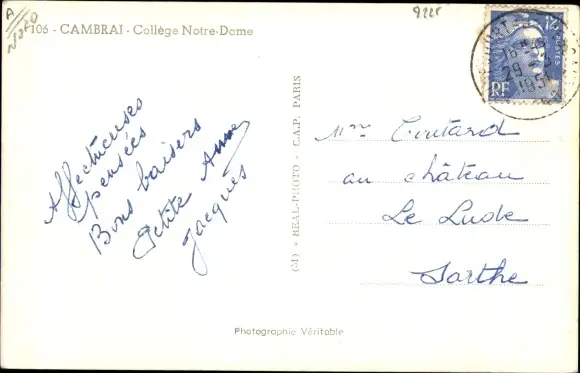 A
NORD
106 - CAMBRAI - Collège Notre-Dame
12F
POSTES
RF
16 H
29 - 
195
Affectueuses
pensées
Bons baisers
Petite Anne
Jacques
(M) - REAL-PHOTO - C.A.P. PARIS
Mme Coutard
au château
Le Lude
Sarthe
Photographie Véritable